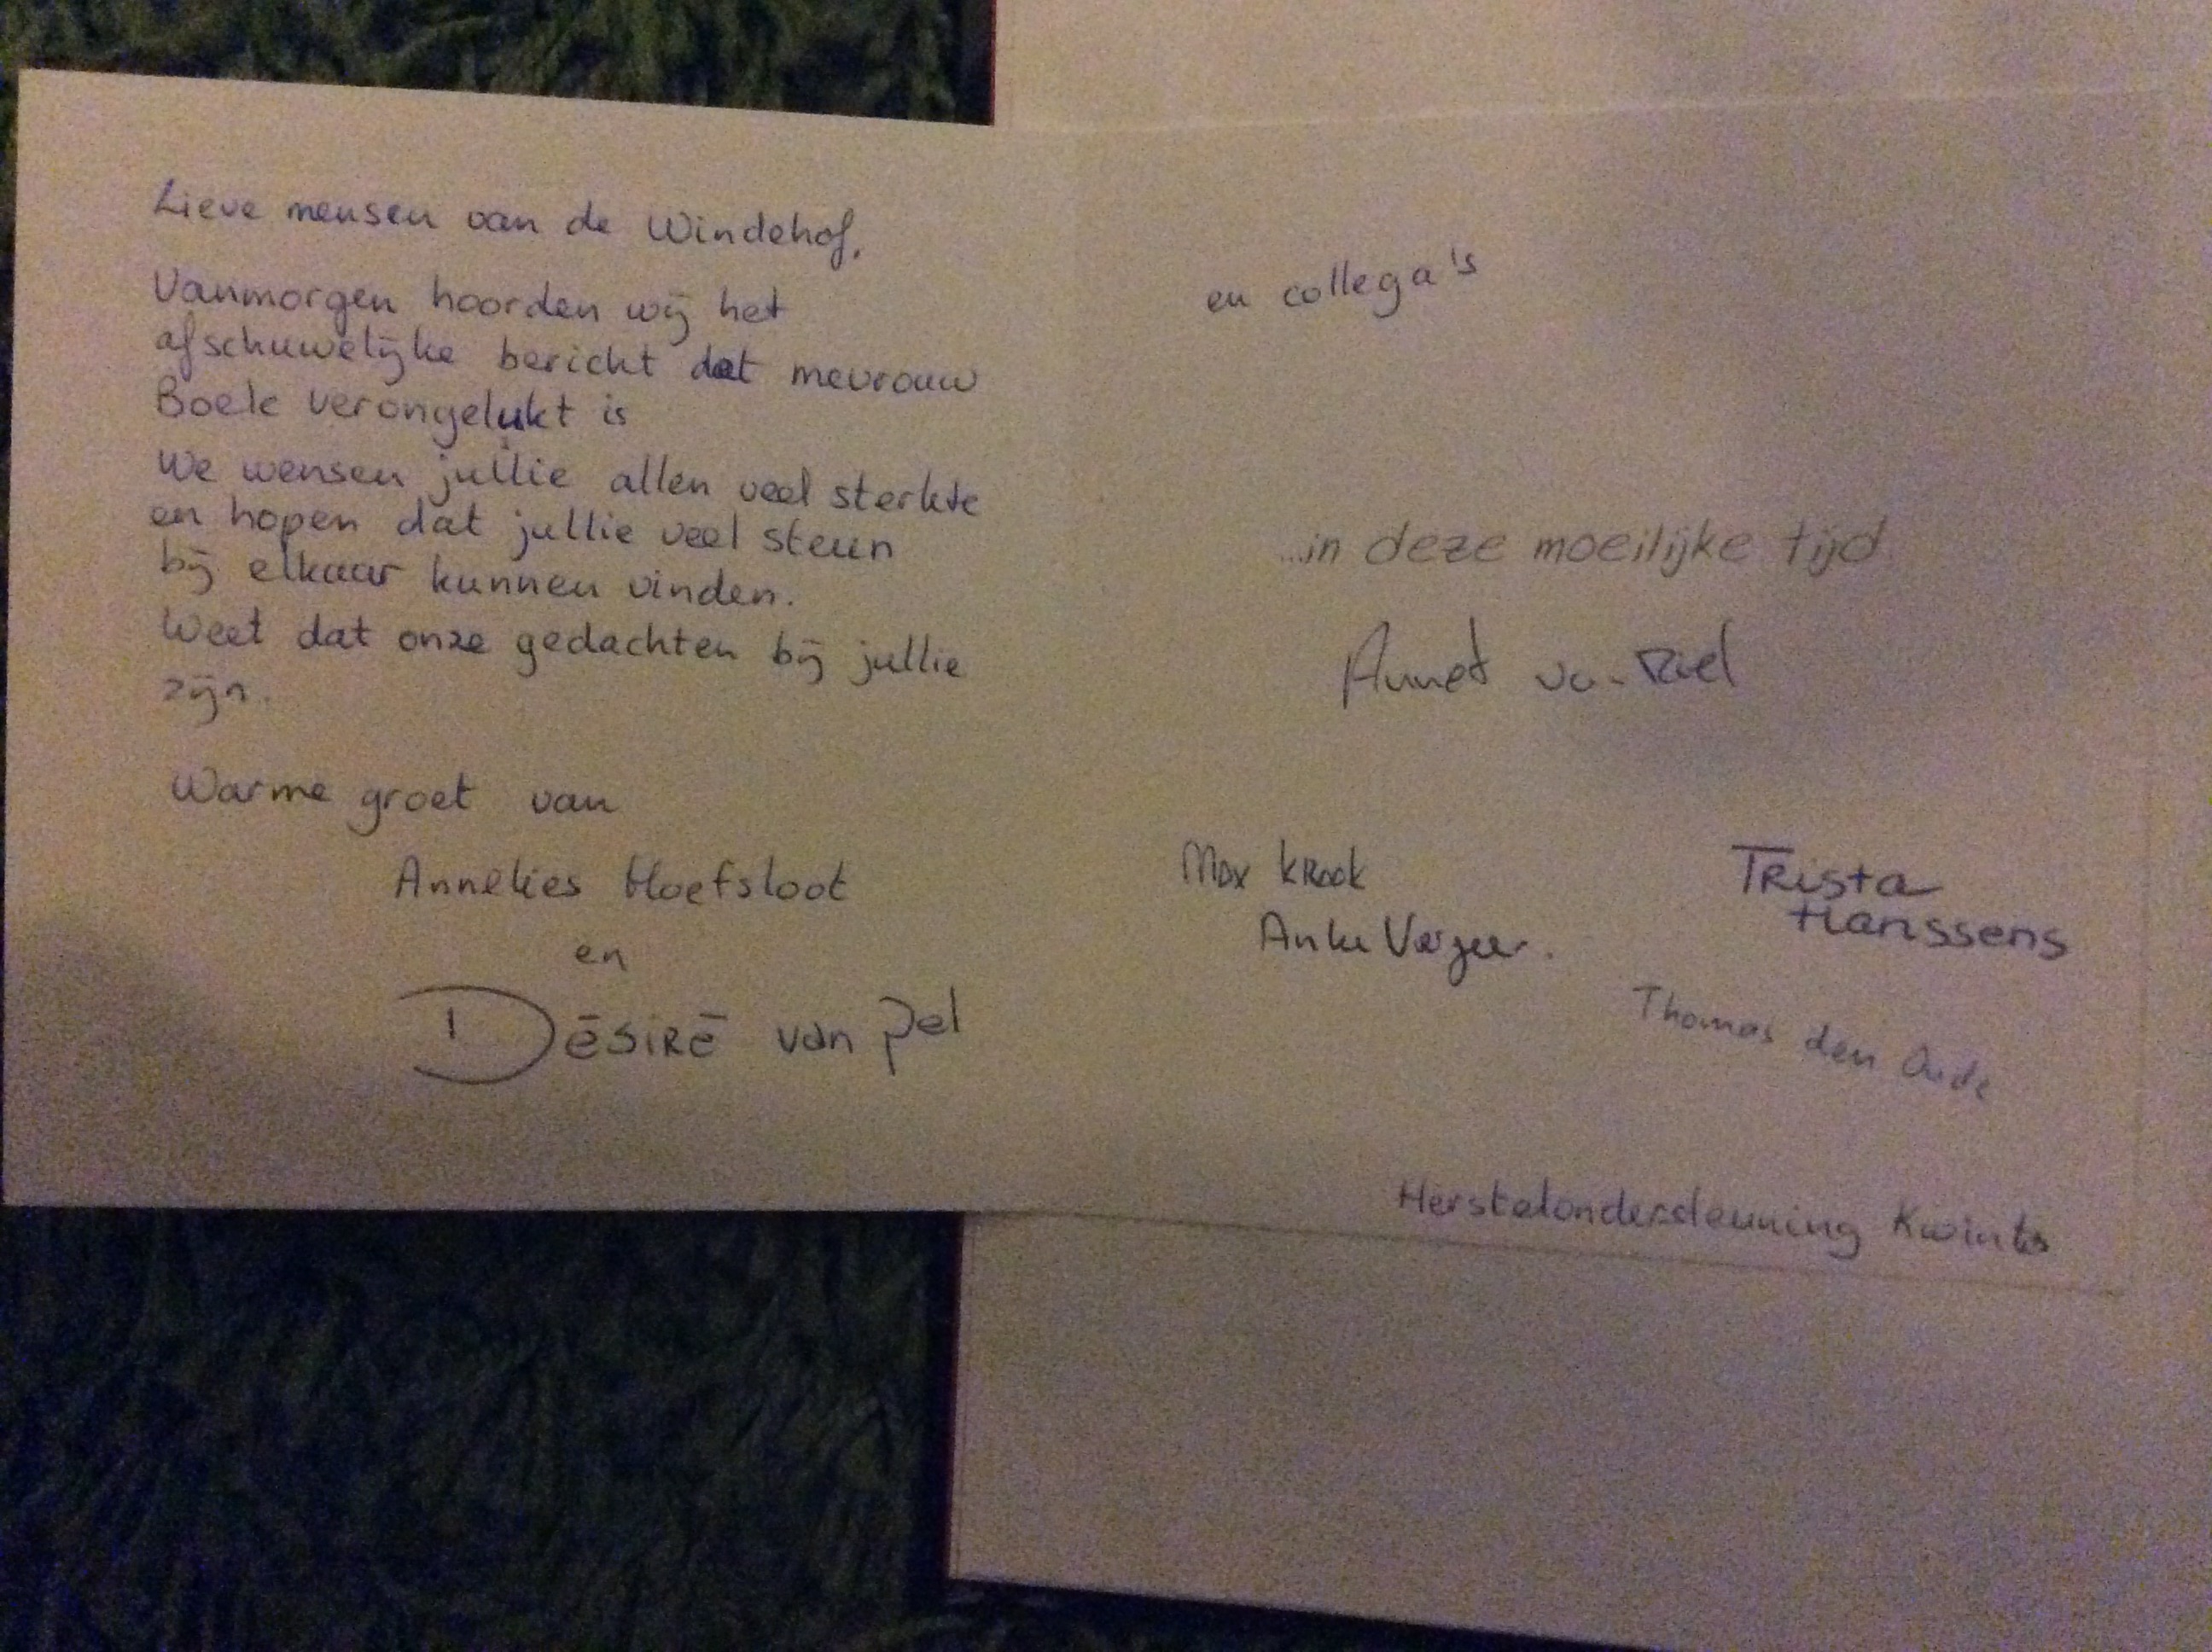 Lieve mensen van de Windehof,
Vanmorgen hoorden wij het
afschuwelijke bericht dat mevrouw
Boele verongelukt is
We wensen jullie allen veel sterkte
en hopen dat jullie veel steun
bij elkaar kunnen vinden.
Weet dat onze gedachten bij jullie
zijn.
Warme groet van
Annelies Hoefsloot
en
Désiré van Pel
en collega's
...in deze moeilijke tijd
Annet van Riel
Max Krook
Anke Vergeer.
Trista
Hanssens
Thomas den Oude
Herstelondersteuning Kwintes